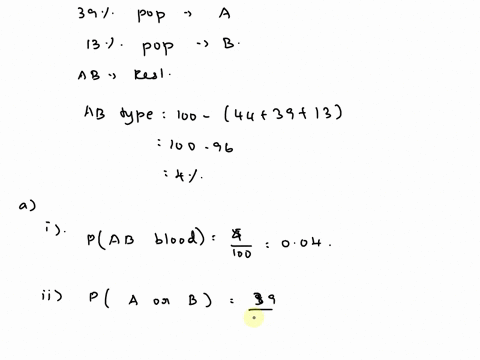 39% pop → A
13% pop → B.
AB → Rest.
AB type : 100 - (44 + 39 + 13)
: 100 - 96
: 4%.
a)
i). P(AB blood) : 4/100 : 0.04.
ii) P( A or B) = 39